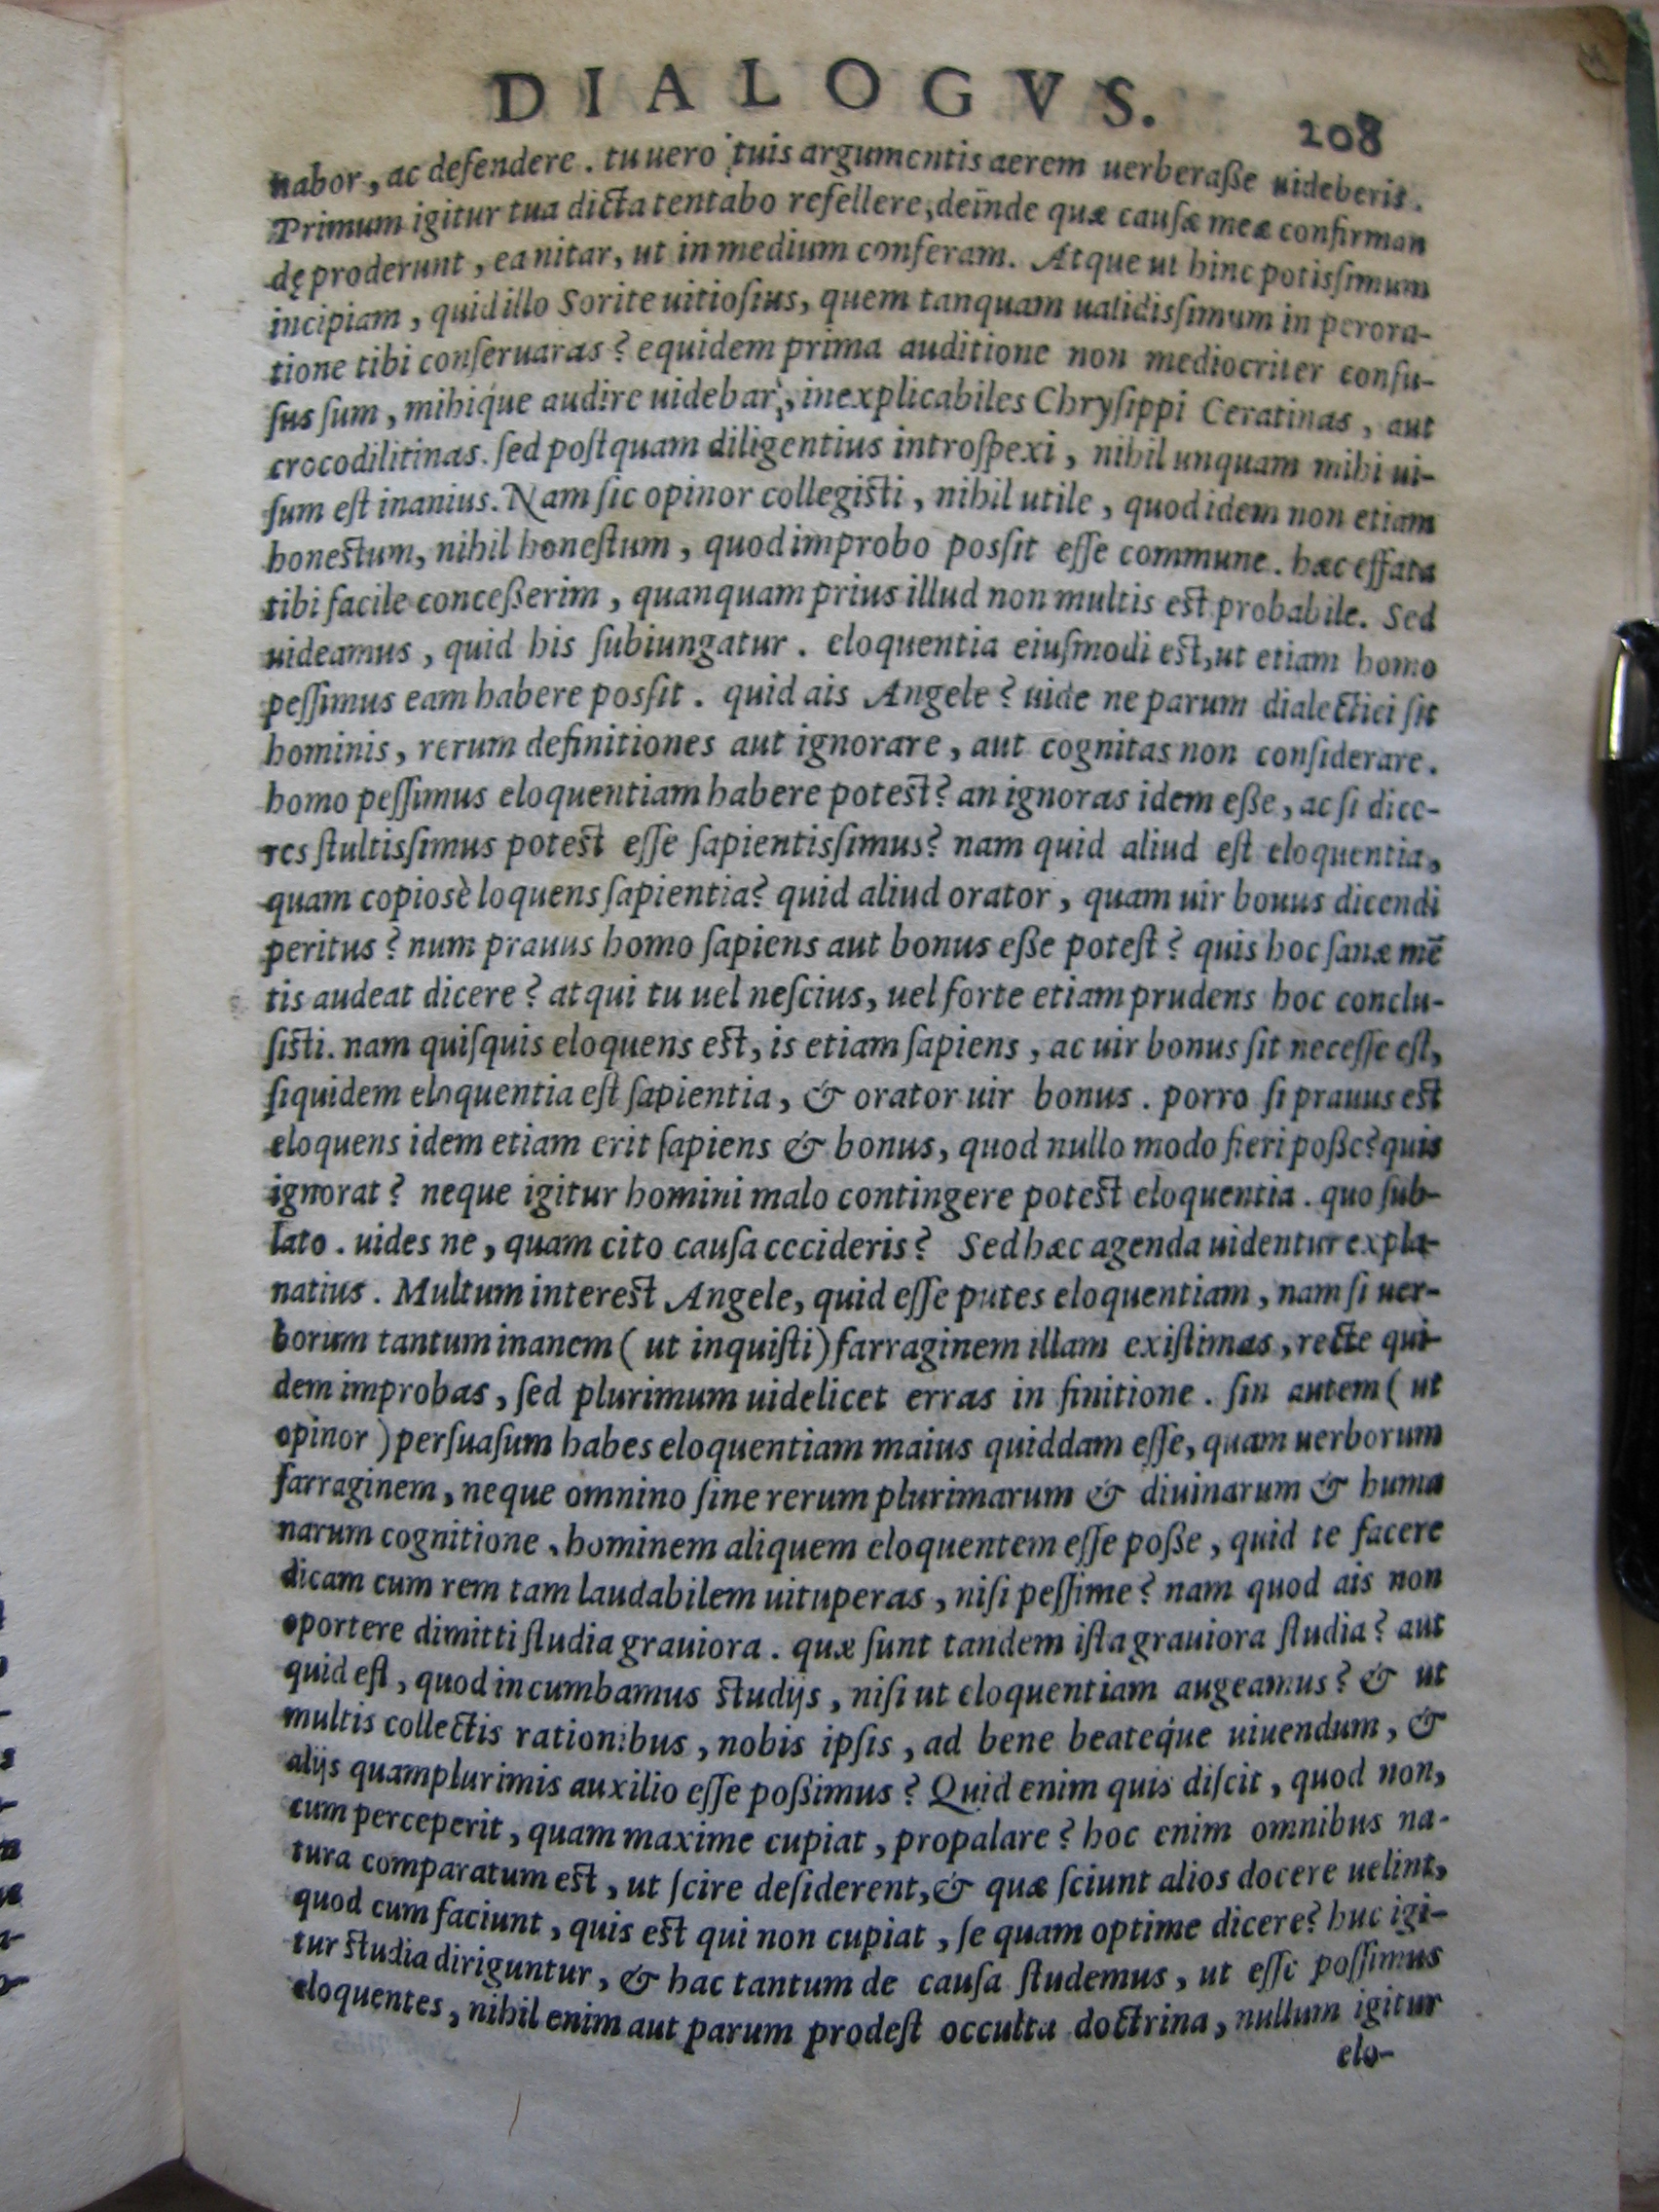 DIALOGVS.
208
nabor, ac defendere. tu uero tuis argumentis aerem uerberaße uideberis.
Primum igitur tua dicta tentabo refellere, deinde quæ causæ meæ confirman
dę proderunt, ea nitar, ut in medium conferam. Atque ut hinc potissimum
incipiam, quid illo Sorite uitiosius, quem tanquam ualidissimum in perora-
tione tibi conseruaras? equidem prima auditione non mediocriter confu-
sus sum, mihiq́ue audire uidebar, inexplicabiles Chrysippi Ceratinas, aut
crocodilitinas. sed postquam diligentius introspexi, nihil unquam mihi ui-
sum est inanius. Nam sic opinor collegisti, nihil utile, quod idem non etiam
honestum, nihil honestum, quod improbo possit esse commune. hæc effata
tibi facile conceßerim, quanquam prius illud non multis est probabile. Sed
uideamus, quid his subiungatur. eloquentia eiusmodi est, ut etiam homo
pessimus eam habere possit. quid ais Angele? uide ne parum dialectici sit
hominis, rerum definitiones aut ignorare, aut cognitas non considerare.
homo pessimus eloquentiam habere potest? an ignoras idem eße, ac si dice-
res stultissimus potest esse sapientissimus? nam quid aliud est eloquentia,
quam copiosè loquens sapientia? quid aliud orator, quam uir bonus dicendi
peritus? num prauus homo sapiens aut bonus eße potest? quis hoc sanæ mē
tis audeat dicere? atqui tu uel nescius, uel forte etiam prudens hoc conclu-
sisti. nam quisquis eloquens est, is etiam sapiens, ac uir bonus sit necesse est,
siquidem eloquentia est sapientia, & orator uir bonus. porro si prauus est
eloquens idem etiam erit sapiens & bonus, quod nullo modo fieri poße? quis
ignorat? neque igitur homini malo contingere potest eloquentia. quo sub-
lato. uides ne, quam cito causa cecideris? Sed hæc agenda uidentur expla-
natius. Multum interest Angele, quid esse putes eloquentiam, nam si uer-
borum tantum inanem (ut inquisti) farraginem illam existimas, recte qui-
dem improbas, sed plurimum uidelicet erras in finitione. sin autem (ut
opinor) persuasum habes eloquentiam maius quiddam esse, quam uerborum
farraginem, neque omnino sine rerum plurimarum & diuinarum & huma
narum cognitione, hominem aliquem eloquentem esse poße, quid te facere
dicam cum rem tam laudabilem uituperas, nisi pessime? nam quod ais non
oportere dimitti studia grauiora. quæ sunt tandem ista grauiora studia? aut
quid est, quod incumbamus studijs, nisi ut eloquentiam augeamus? & ut
multis collectis rationibus, nobis ipsis, ad bene beateq́ue uiuendum, &
alijs quamplurimis auxilio esse poßimus? Quid enim quis discit, quod non,
cum perceperit, quam maxime cupiat, propalare? hoc enim omnibus na-
tura comparatum est, ut scire desiderent, & quæ sciunt alios docere uelint,
quod cum faciunt, quis est qui non cupiat, se quam optime dicere? huc igi-
tur studia diriguntur, & hac tantum de causa studemus, ut esse possimus
eloquentes, nihil enim aut parum prodest occulta doctrina, nullum igitur
elo-